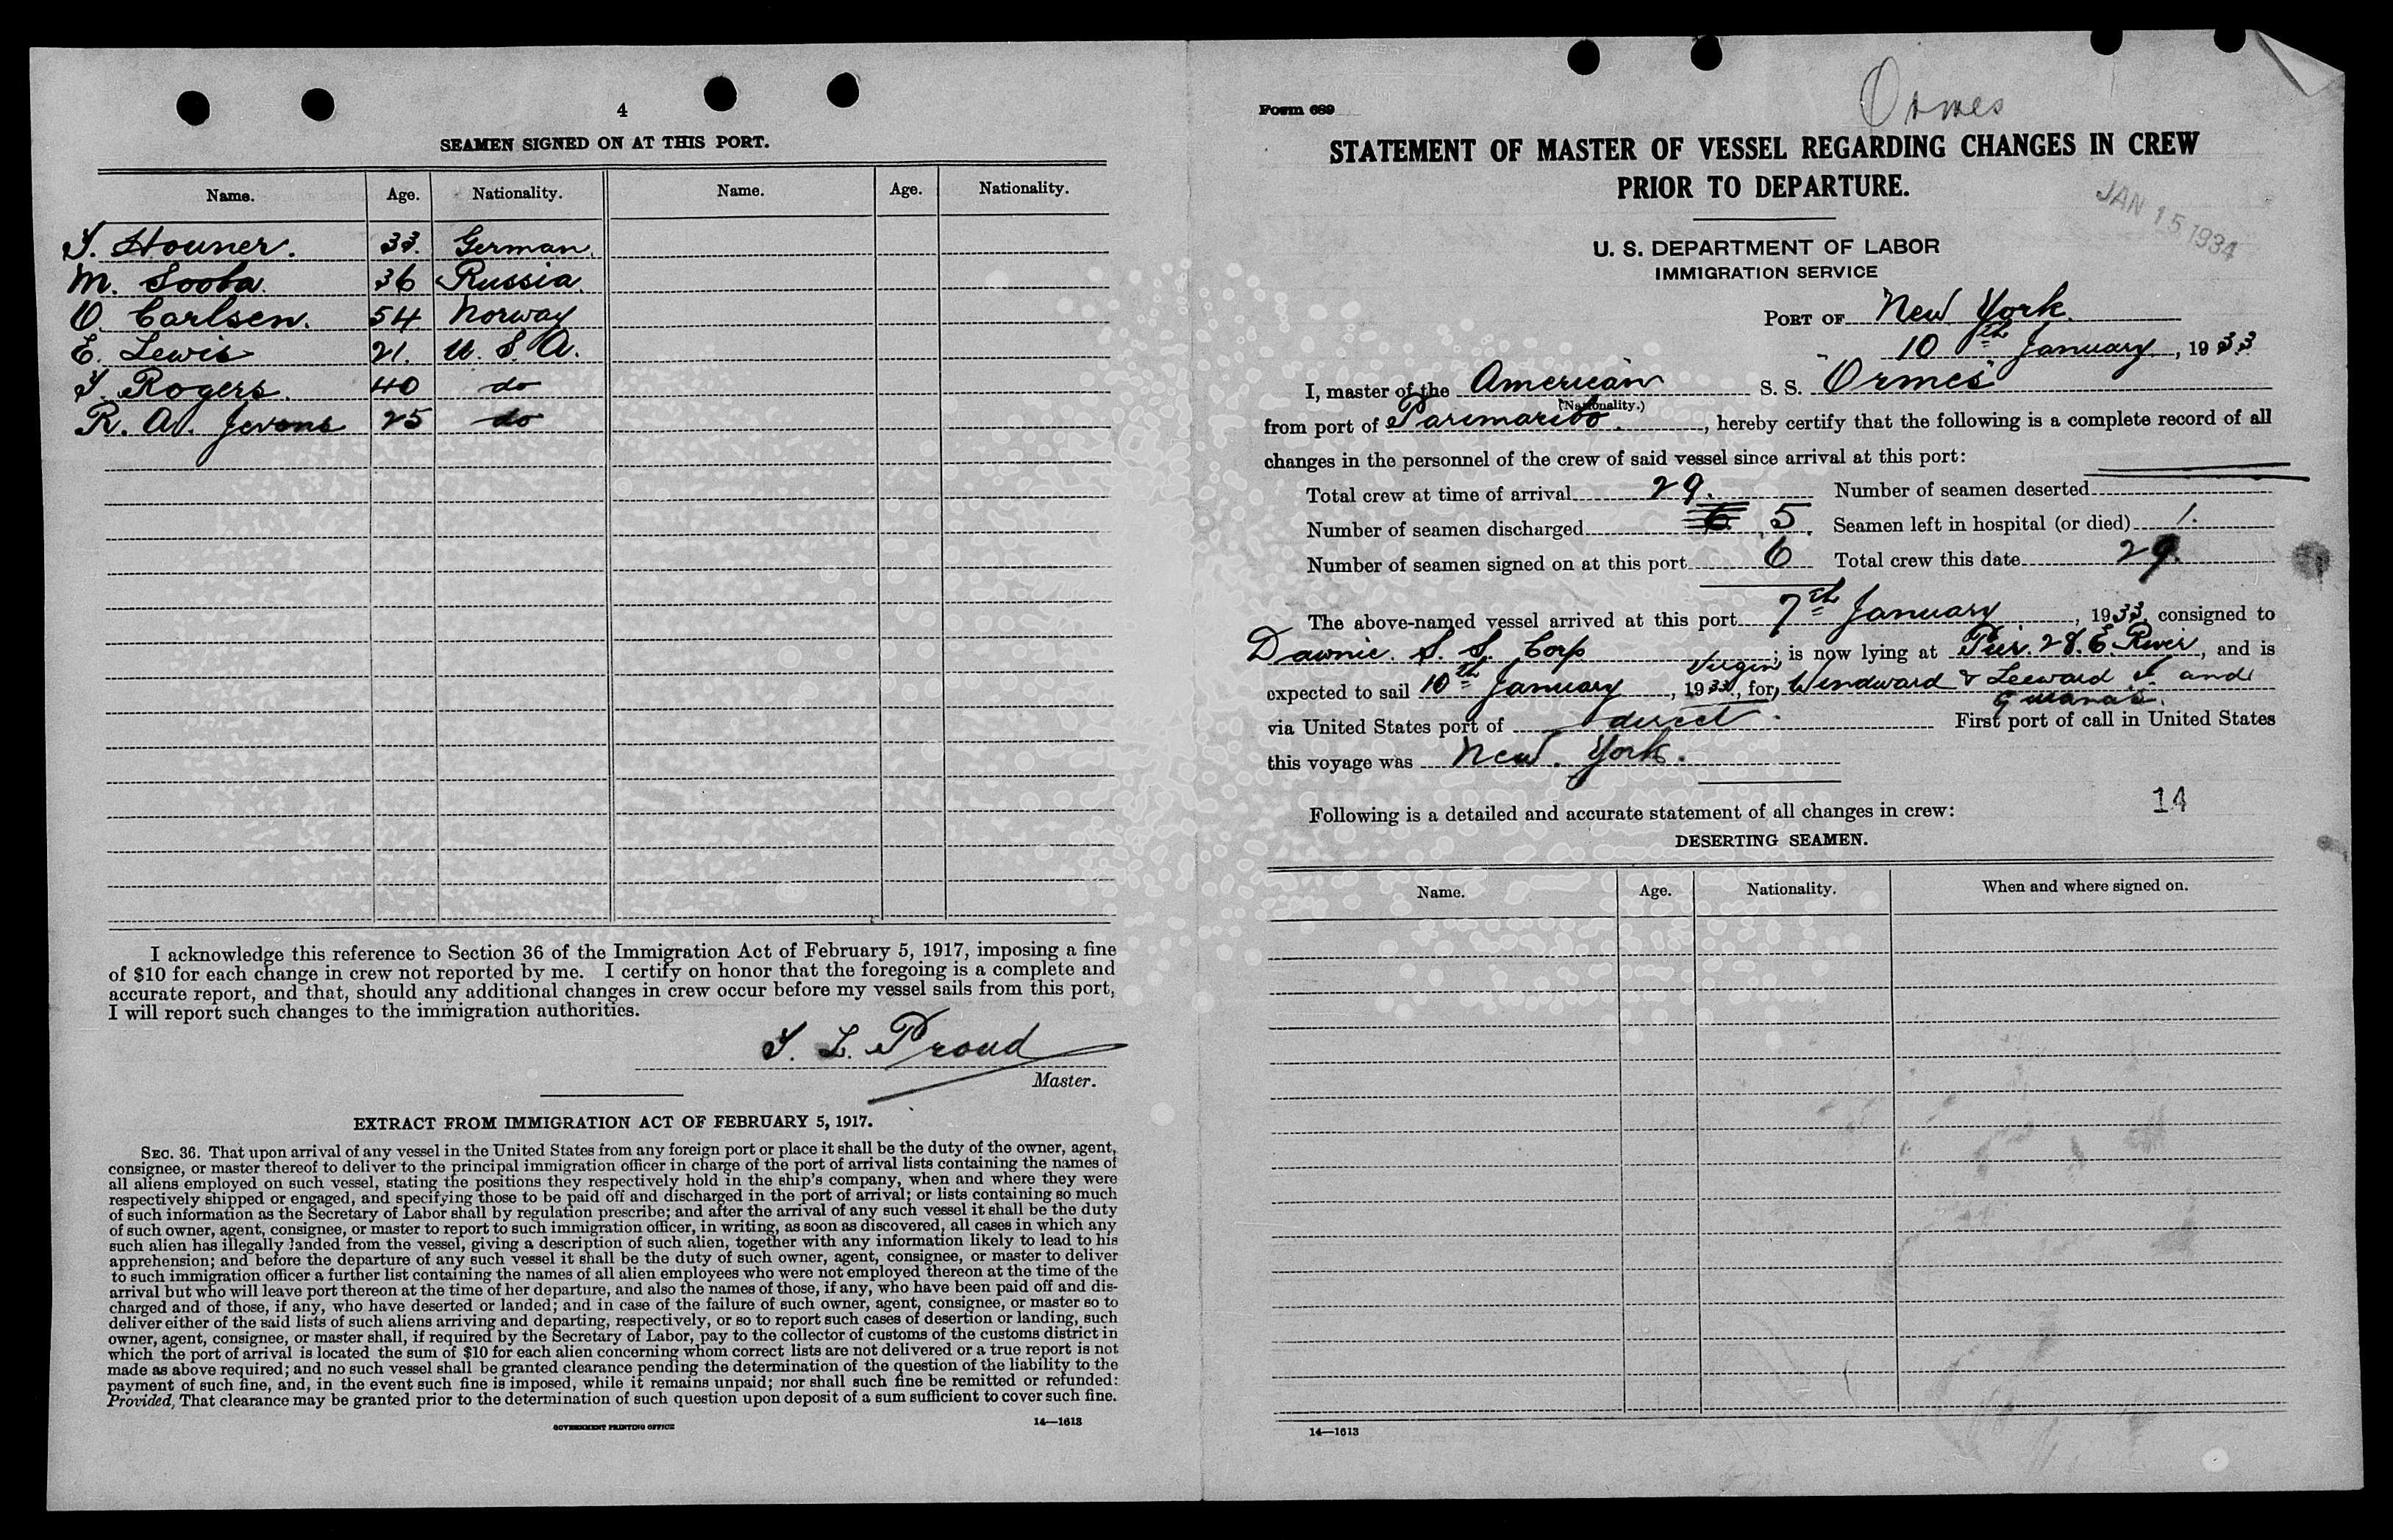 4
SEAMEN SIGNED ON AT THIS PORT.
Name. Age. Nationality. Name. Age. Nationality.
Houner. 33. German.
M. Sooba. 36 Russia.
O. Carlsen. 54 Norway
E. Lewis 21. U. S. A.
Rogers. 40 do
R. A. Jevons 25 do
I acknowledge this reference to Section 36 of the Immigration Act of February 5, 1917, imposing a fine
of $10 for each change in crew not reported by me. I certify on honor that the foregoing is a complete and
accurate report, and that, should any additional changes in crew occur before my vessel sails from this port,
I will report such changes to the immigration authorities.
L. Proud
Master.
EXTRACT FROM IMMIGRATION ACT OF FEBRUARY 5, 1917.
SEC. 36. That upon arrival of any vessel in the United States from any foreign port or place it shall be the duty of the owner, agent,
consignee, or master thereof to deliver to the principal immigration officer in charge of the port of arrival lists containing the names of
all aliens employed on such vessel, stating the positions they respectively hold in the ship's company, when and where they were
respectively shipped or engaged, and specifying those to be paid off and discharged in the port of arrival; or lists containing so much
of such information as the Secretary of Labor shall by regulation prescribe; and after the arrival of any such vessel it shall be the duty
of such owner, agent, consignee, or master to report to such immigration officer, in writing, as soon as discovered, all cases in which any
such alien has illegally landed from the vessel, giving a description of such alien, together with any information likely to lead to his
apprehension; and before the departure of any such vessel it shall be the duty of such owner, agent, consignee, or master to deliver
to such immigration officer a further list containing the names of all alien employees who were not employed thereon at the time of the
arrival but who will leave port thereon at the time of her departure, and also the names of those, if any, who have been paid off and dis-
charged and of those, if any, who have deserted or landed; and in case of the failure of such owner, agent, consignee, or master so to
deliver either of the said lists of such aliens arriving and departing, respectively, or so to report such cases of desertion or landing, such
owner, agent, consignee, or master shall, if required by the Secretary of Labor, pay to the collector of customs of the customs district in
which the port of arrival is located the sum of $10 for each alien concerning whom correct lists are not delivered or a true report is not
made as above required; and no such vessel shall be granted clearance pending the determination of the question of the liability to the
payment of such fine, and, in the event such fine is imposed, while it remains unpaid; nor shall such fine be remitted or refunded:
Provided, That clearance may be granted prior to the determination of such question upon deposit of a sum sufficient to cover such fine.
GOVERNMENT PRINTING OFFICE 14—1613
Ormes
Form 689
STATEMENT OF MASTER OF VESSEL REGARDING CHANGES IN CREW
PRIOR TO DEPARTURE.
JAN 15 1934
U. S. DEPARTMENT OF LABOR
IMMIGRATION SERVICE
PORT OF New York.
10th January, 1933
I, master of the American S. S. "Ormes"
(Nationality.)
from port of Parimaribo., hereby certify that the following is a complete record of all
changes in the personnel of the crew of said vessel since arrival at this port:
Total crew at time of arrival 29. Number of seamen deserted
Number of seamen discharged 6 5. Seamen left in hospital (or died) 1.
Number of seamen signed on at this port 6 Total crew this date 29.
The above-named vessel arrived at this port 7th January, 1933, consigned to
Dawnic. S. S. Corp; is now lying at Pier. 28. E. River, and is
Virgin
expected to sail 10th January, 1933, for, Windward & Leeward I. and
Guiana's.
via United States port of direct. First port of call in United States
this voyage was New. York.
Following is a detailed and accurate statement of all changes in crew: 14
DESERTING SEAMEN.
Name. Age. Nationality. When and where signed on.
14—1613